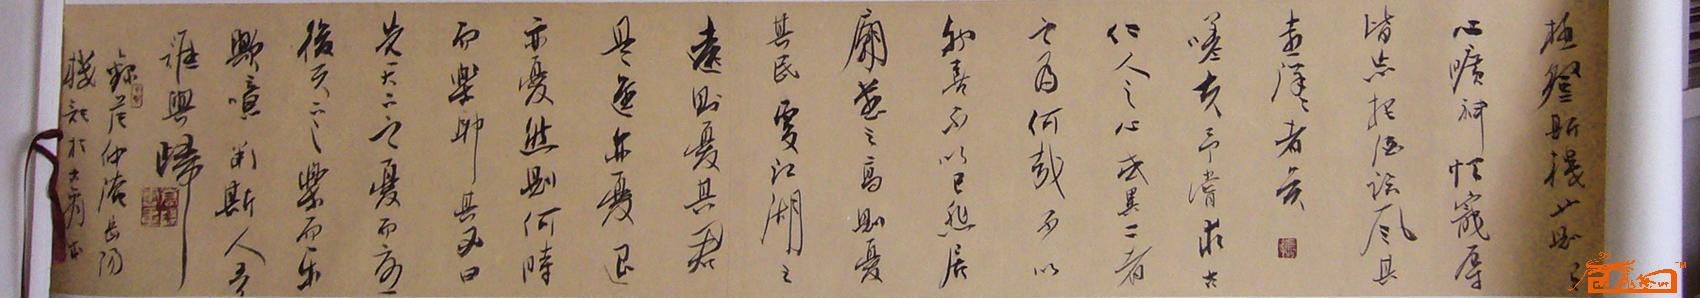 極登斯樓也則有
心曠神怡寵辱
皆忘把酒臨風其
喜洋洋者矣
嗟夫予嘗求古
仁人之心或異二者
之為何哉不以
物喜不以己悲居
廟堂之高則憂
其民處江湖之
遠則憂其君
是進亦憂退
亦憂然則何時
而樂耶其必曰
先天下之憂而憂
後天下之樂而乐
歟噫微斯人吾
誰與歸
錄范仲淹岳陽
樓記於